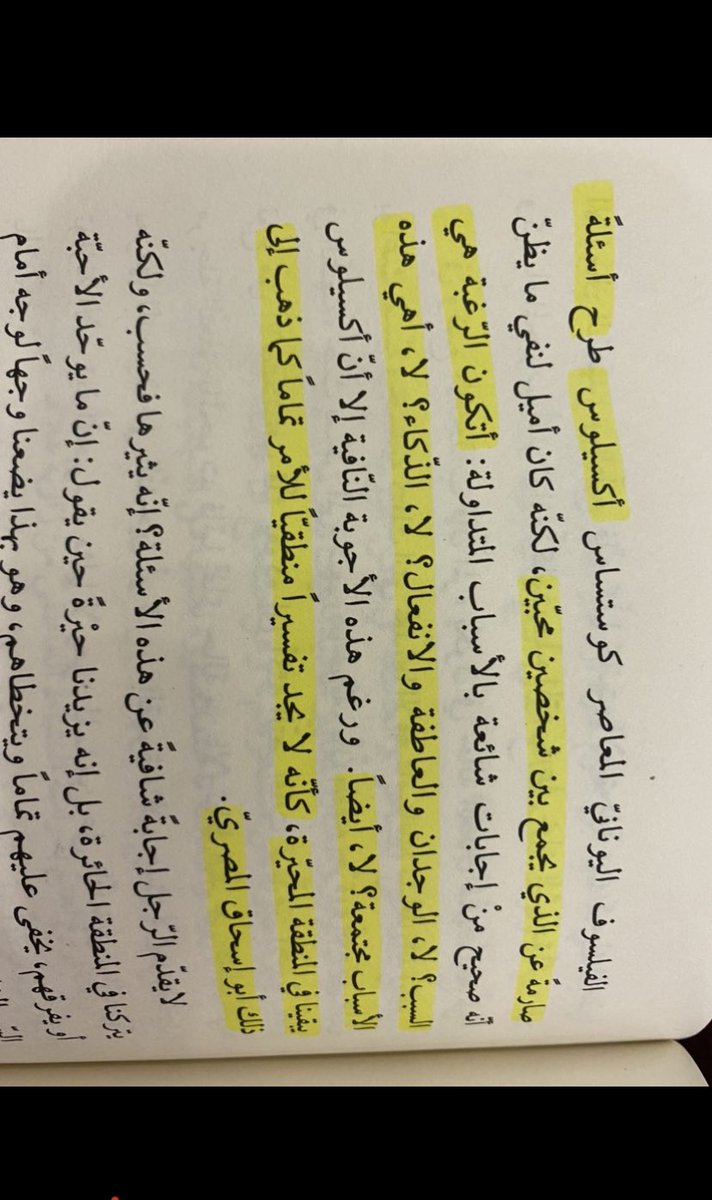 الفيلسوف اليونانيّ المعاصر كوستاس أكسيلوس طرح أسئلةً
صارمةً عن الذي يجمع بين شخصين محبّين، لكنّه كان أميل لنفي ما يظنّ
أنّه صحيح منْ إجابات شائعة بالأسباب المتداولة: أتكون الرّغبة هي
السبب؟ لا، الوجدان والعاطفة والانفعال؟ لا، الذّكاء؟ لا، أهي هذه
الأسباب مجتمعة؟ لا، أيضاً. ورغم هذه الأجوبة النّافية إلا أنّ أكسيلوس
يبقينا في المنطقة المحيّرة، كأنّه لا يجد تفسيراً منطقيّاً للأمر تماماً كما ذهب إلى
ذلك أبو إسحاق المصريّ.
لا يقدّم الرّجل إجابةً شافيةً عن هذه الأسئلة؟ إنّه يثيرها فحسب، ولكنّه
يتركنا في المنطقة الحائرة، بل إنه يزيدنا حيْرةً حين يقول: إنّ ما يوحّد الأحبّة
أو يفرقهم، يخفى عليهم تماماً ويتخطاهم، وهو بهذا يضعنا وجهاً لوجه أمام